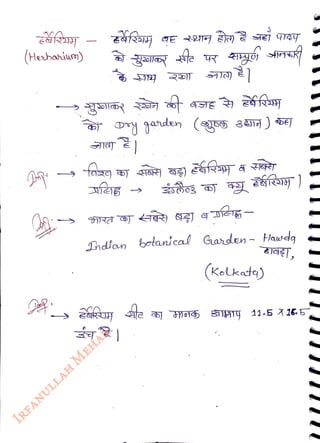 हर्बेरियम — हर्बेरियम वह स्थान होता है जहाँ पादप
(Herbarium) को सुखाकर सीट पर सम्पूर्ण जानकारी
के साथ रखा जाता है।
→ सुखाकर रखने की वजह से हर्बेरियम
को Dry garden (शुष्क उद्यान) कहा
जाता है।
→ विश्व का सबसे बड़ा हर्बेरियम व सबसे
प्रसिद्ध → इंग्लैण्ड का क्यू हर्बेरियम।
→ भारत का सबसे बड़ा व प्रसिद्ध —
Indian botanical Garden - Hawda
हावड़ा,
(Kolkata)
→ हर्बेरियम सीट का मानक आमाप 11.5 X 16.5
इंच है।
IRFANULLAH MEHA